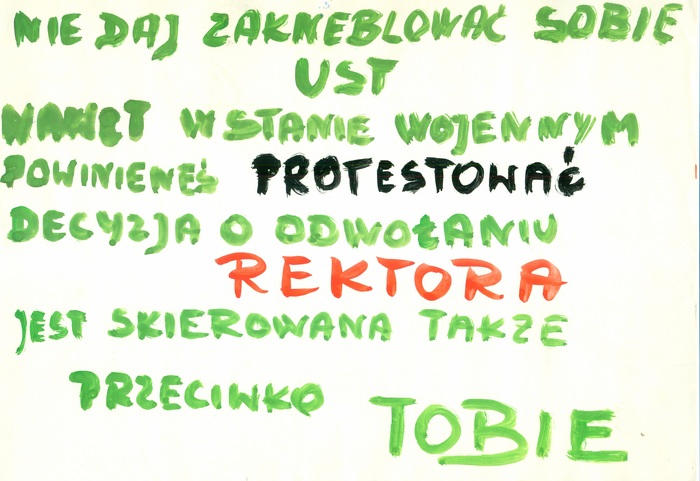 NIE DAJ ZAKNEBLOWAĆ SOBIE
UST
NAWET W STANIE WOJENNYM
POWINIENEŚ PROTESTOWAĆ
DECYZJA O ODWOŁANIU
REKTORA
JEST SKIEROWANA TAKZE
PRZECIWKO TOBIE